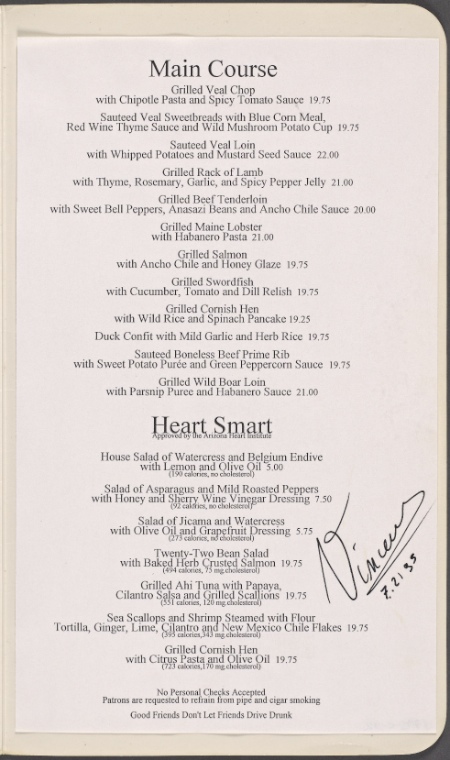 Main Course
Grilled Veal Chop
with Chipotle Pasta and Spicy Tomato Sauce 19.75
Sauteed Veal Sweetbreads with Blue Corn Meal,
Red Wine Thyme Sauce and Wild Mushroom Potato Cup 19.75
Sauteed Veal Loin
with Whipped Potatoes and Mustard Seed Sauce 22.00
Grilled Rack of Lamb
with Thyme, Rosemary, Garlic, and Spicy Pepper Jelly 21.00
Grilled Beef Tenderloin
with Sweet Bell Peppers, Anasazi Beans and Ancho Chile Sauce 20.00
Grilled Maine Lobster
with Habanero Pasta 21.00
Grilled Salmon
with Ancho Chile and Honey Glaze 19.75
Grilled Swordfish
with Cucumber, Tomato and Dill Relish 19.75
Grilled Cornish Hen
with Wild Rice and Spinach Pancake 19.25
Duck Confit with Mild Garlic and Herb Rice 19.75
Sauteed Boneless Beef Prime Rib
with Sweet Potato Purée and Green Peppercorn Sauce 19.75
Grilled Wild Boar Loin
with Parsnip Puree and Habanero Sauce 21.00
Heart Smart
Approved by the Arizona Heart Institute
House Salad of Watercress and Belgium Endive
with Lemon and Olive Oil 5.00
(190 calories, no cholesterol)
Salad of Asparagus and Mild Roasted Peppers
with Honey and Sherry Wine Vinegar Dressing 7.50
(92 calories, no cholesterol)
Salad of Jicama and Watercress
with Olive Oil and Grapefruit Dressing 5.75
(273 calories, no cholesterol)
Twenty-Two Bean Salad
with Baked Herb Crusted Salmon 19.75
(494 calories, 75 mg.cholesterol)
Grilled Ahi Tuna with Papaya,
Cilantro Salsa and Grilled Scallions 19.75
(551 calories, 120 mg.cholesterol)
Sea Scallops and Shrimp Steamed with Flour
Tortilla, Ginger, Lime, Cilantro and New Mexico Chile Flakes 19.75
(595 calories,343 mg.cholesterol)
Grilled Cornish Hen
with Citrus Pasta and Olive Oil 19.75
(723 calories,170 mg.cholesterol)
Vincent
7.21.95
No Personal Checks Accepted
Patrons are requested to refrain from pipe and cigar smoking
Good Friends Don't Let Friends Drive Drunk